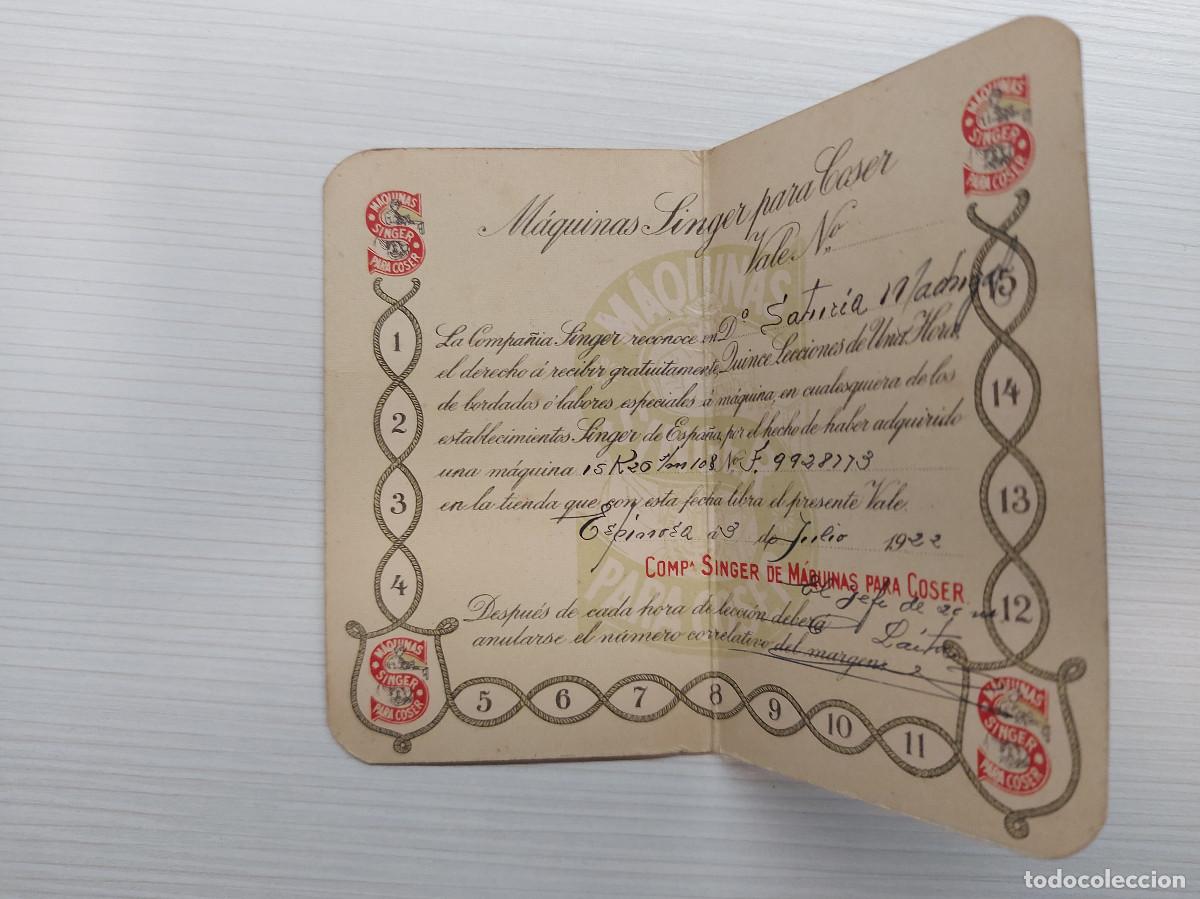 MÁQUINAS
SINGER
PARA COSER
MÁQUINAS
SINGER
PARA COSER
Máquinas Singer para Coser
Vale No
La Compañia Singer reconoce en Da Saturia Madrigal
el derecho á recibir gratuitamente, Quince Lecciones de Una Hora,
de bordados ó labores especiales á máquina, en cualesquiera de los
establecimientos Singer de España, por el hecho de haber adquirido
una máquina 15K26 No F. 9928773
en la tienda que con esta fecha libra el presente Vale.
Espinosa á 3 de Julio 1922
COMPA SINGER DE MÁQUINAS PARA COSER.
El Jefe de
Después de cada hora de lección deberá
anularse el número correlativo del margen.
1
2
3
4
5
6
7
8
9
10
11
12
13
14
15
MÁQUINAS
SINGER
PARA COSER
MÁQUINAS
SINGER
PARA COSER
MÁQUINAS
PARA COSER
todocoleccion